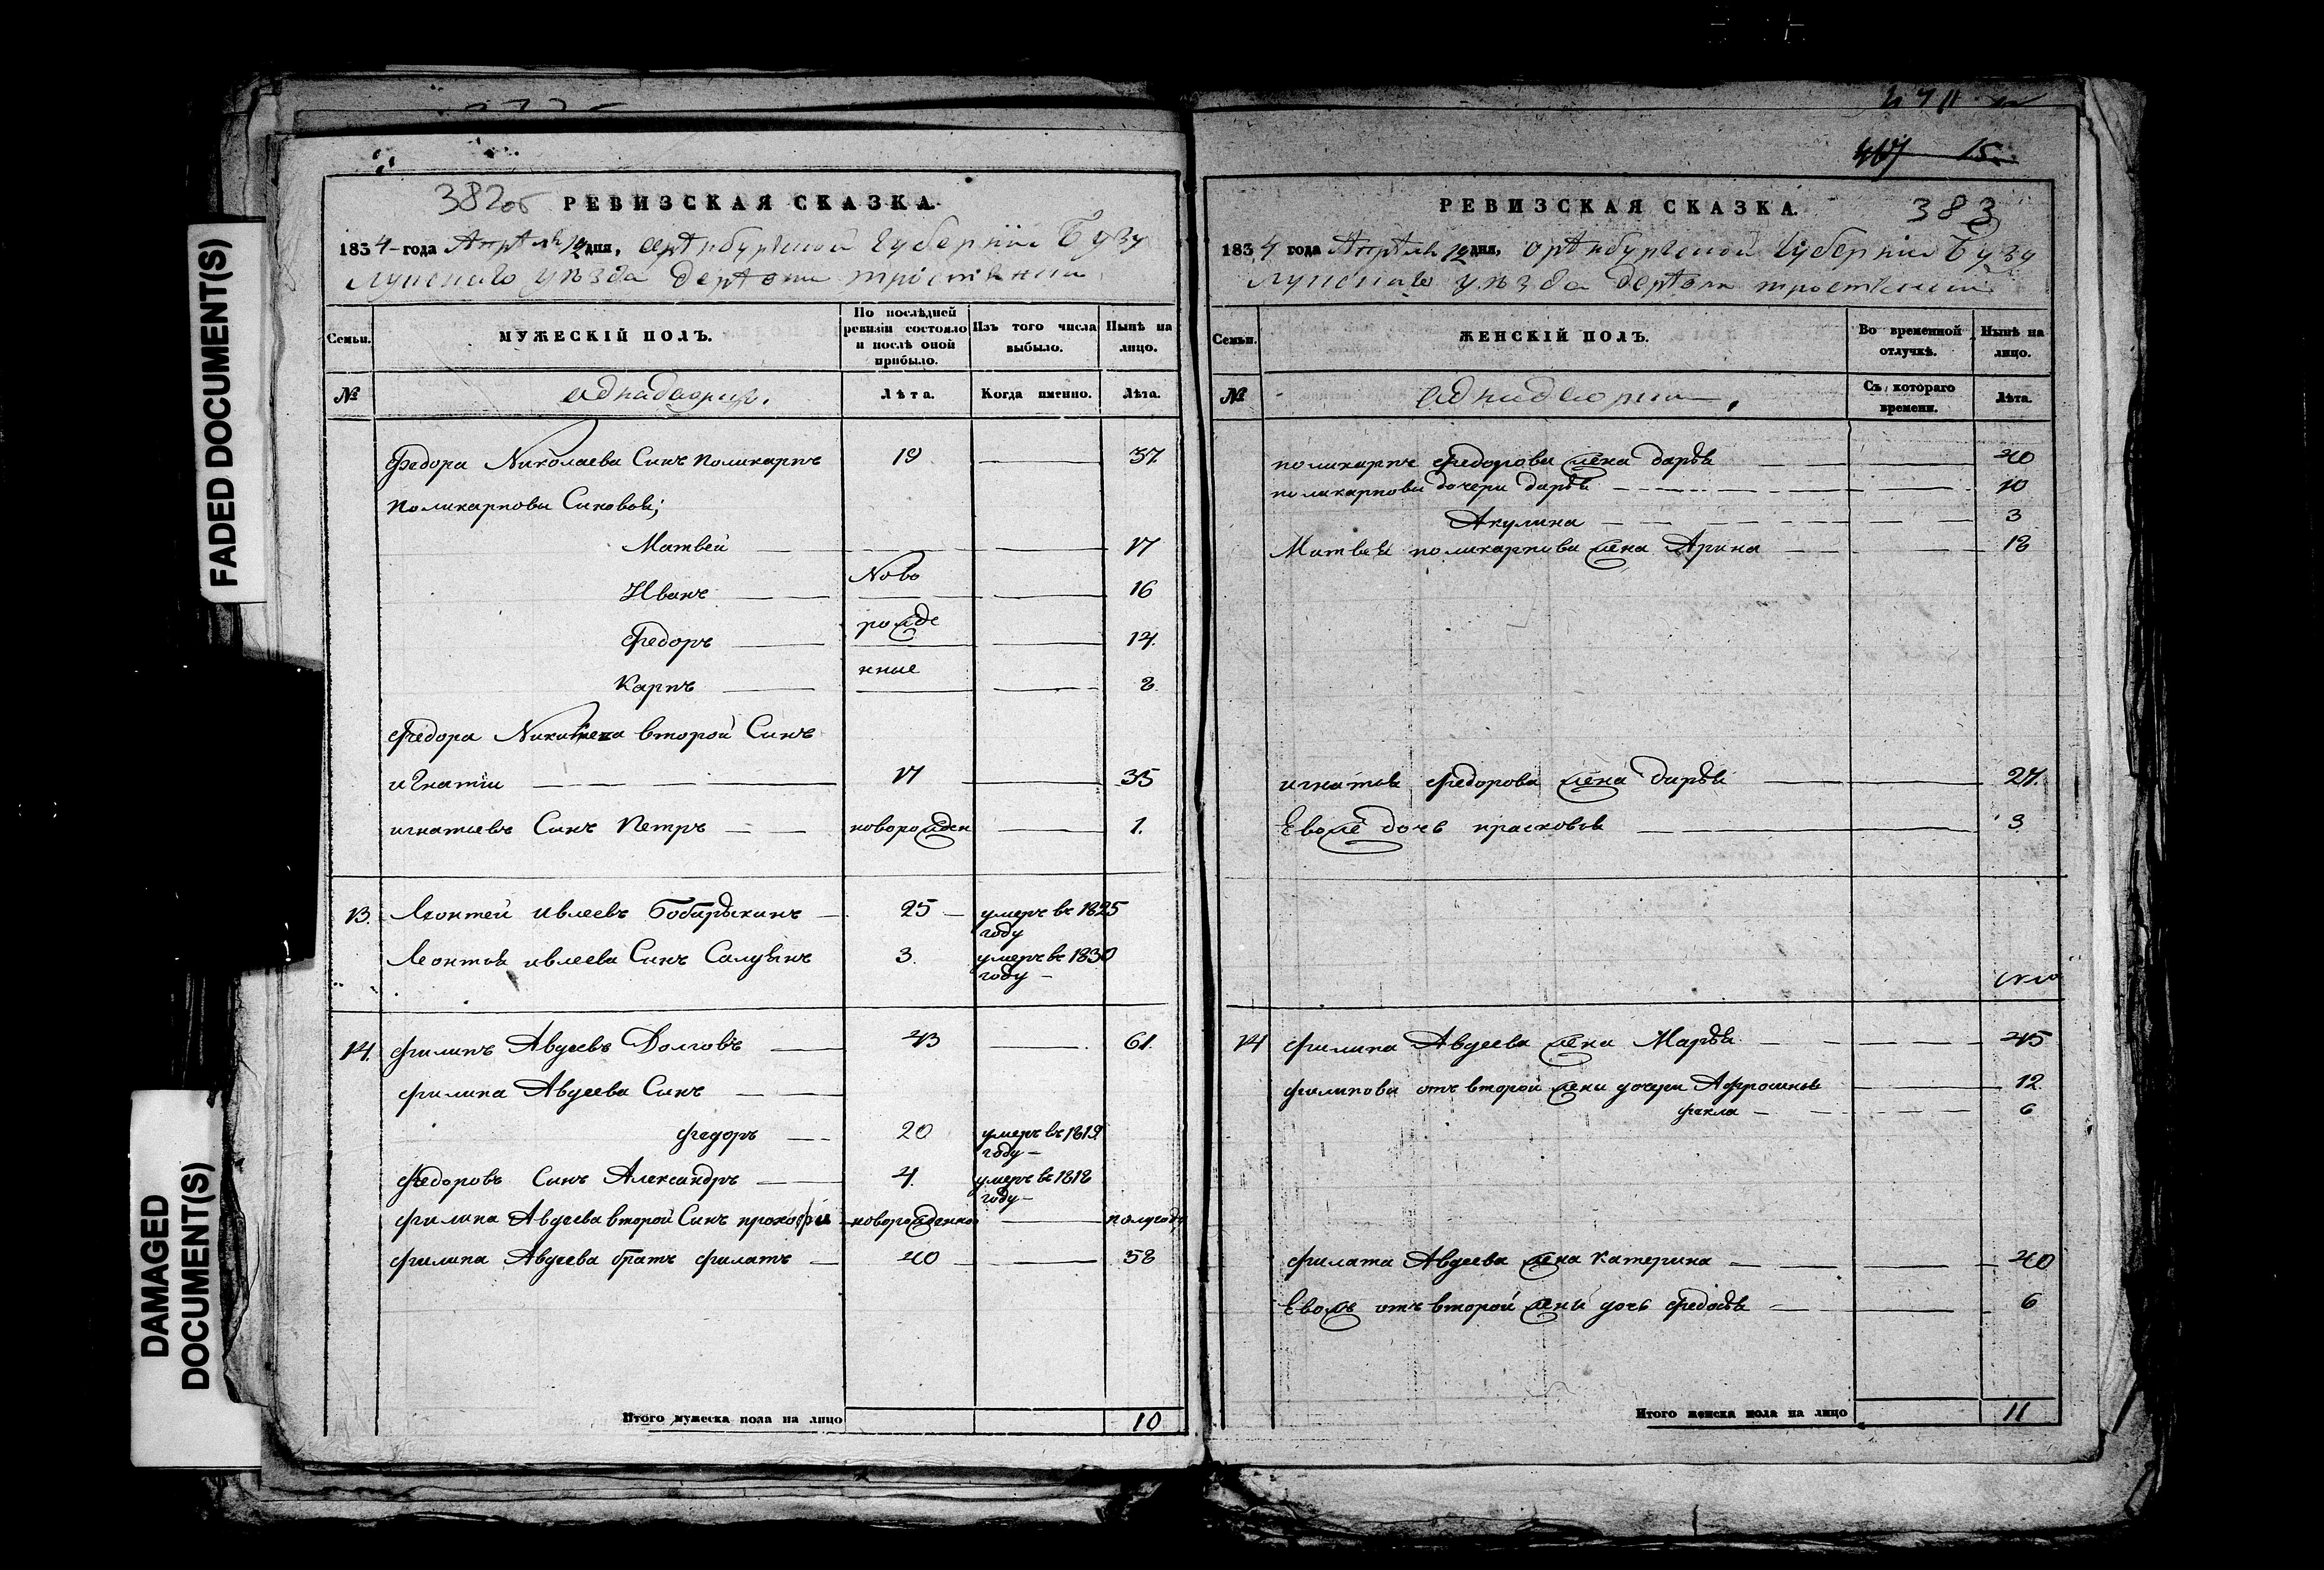 FADED DOCUMENT(S)
DAMAGED
DOCUMENT(S)
382об РЕВИЗСКАЯ СКАЗКА.
1834 года Апрѣля 12 дня, оренбургской губерніи Бузу
лукскаго уѣзда деревни
Семьи. МУЖЕСКІЙ ПОЛЪ. По послѣдней ревизіи состояло и послѣ оной прибыло. Изъ того числа выбыло. Нынѣ на лицо.
№ Лѣта. Когда именно. Лѣта.
Федора Николаева Сынъ поликарпъ 19 37
Поликарповы Сыновья;
Матвей 17
Ново
Иванъ 16
рожде
Федоръ 14.
нные
Карпъ 8
Федора второй Сынъ
игнатіи 17 35
игнатьевъ Сынъ Петръ новорожден 1.
13. Леонтей ивлеевъ 25 умеръ въ 1825
году
Леонтья ивлеева Сынъ 3. умеръ въ 1830
году
14. филипъ Авдеевъ Долговъ 43 61.
филипа Авдеева Сынъ
федоръ 20 умеръ въ 1819
году
федоровъ Сынъ Александръ 4. умеръ въ 1818
году
филипа Авдеева второй Сынъ прокофи полугоду
филипа Авдеева братъ филатъ 40 58
Итого мужеска пола на лицо 10
15
РЕВИЗСКАЯ СКАЗКА. 383
1834 года Апрѣля 12 дня, оренбургской губерніи Бузу
лукскаго уѣзда деревни
Семьи. ЖЕНСКІЙ ПОЛЪ. Во временной отлучкѣ. Нынѣ на лицо.
№ Съ котораго времени. Лѣта.
поликарпа федорова жена дарья 40
поликарповы дочери дарья 10
Акулина 3
Матвея поликарпова жена Арина 18
игнатья федорова жена дарья 27.
Евоже дочь прасковья 3
14 филипа Авдеева жена Марья 45
филипова отъ второй жены дочери Афросинья 12
фекла 6
филата Авдеева жена катерина 40
Евожъ отъ второй жены дочь федосья 6
Итого женска пола на лицо 11